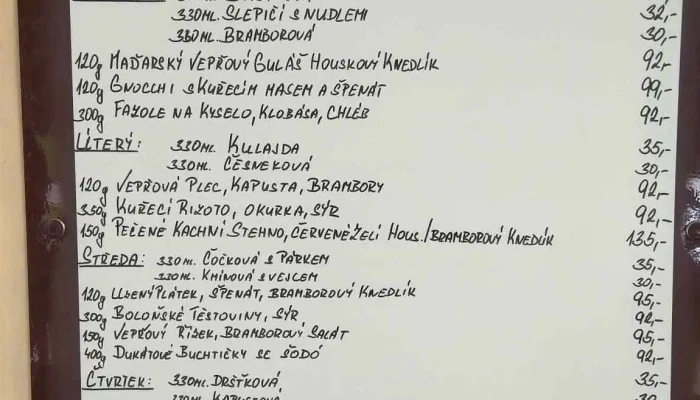 330ml. Slepičí s nudlemi 32,-
330ml. Bramborová 30,-
120g Maďarský vepřový guláš houskový knedlík 92,-
120g Gnocchi s kuřecím masem a špenát 99,-
300g Fazole na kyselo, klobása, chléb 92,-
Úterý: 330ml. Kulajda 35,-
330ml. Česneková 30,-
120g Vepřová plec, kapusta, brambory 92,-
350g Kuřecí rizoto, okurka, sýr 92,-
150g Pečené kachní stehno, červené zelí hous./bramborový knedlík 135,-
Středa: 330ml. Čočková s párkem 35,-
330ml. Kmínová s vejcem 30,-
120g Uzený plátek, špenát, bramborový knedlík 95,-
300g Boloňské těstoviny, sýr 92,-
150g Vepřový řízek, bramborový salát 95,-
400g Dukátové buchtičky se šodó 92,-
Čtvrtek: 330ml. Dršťková 35,-